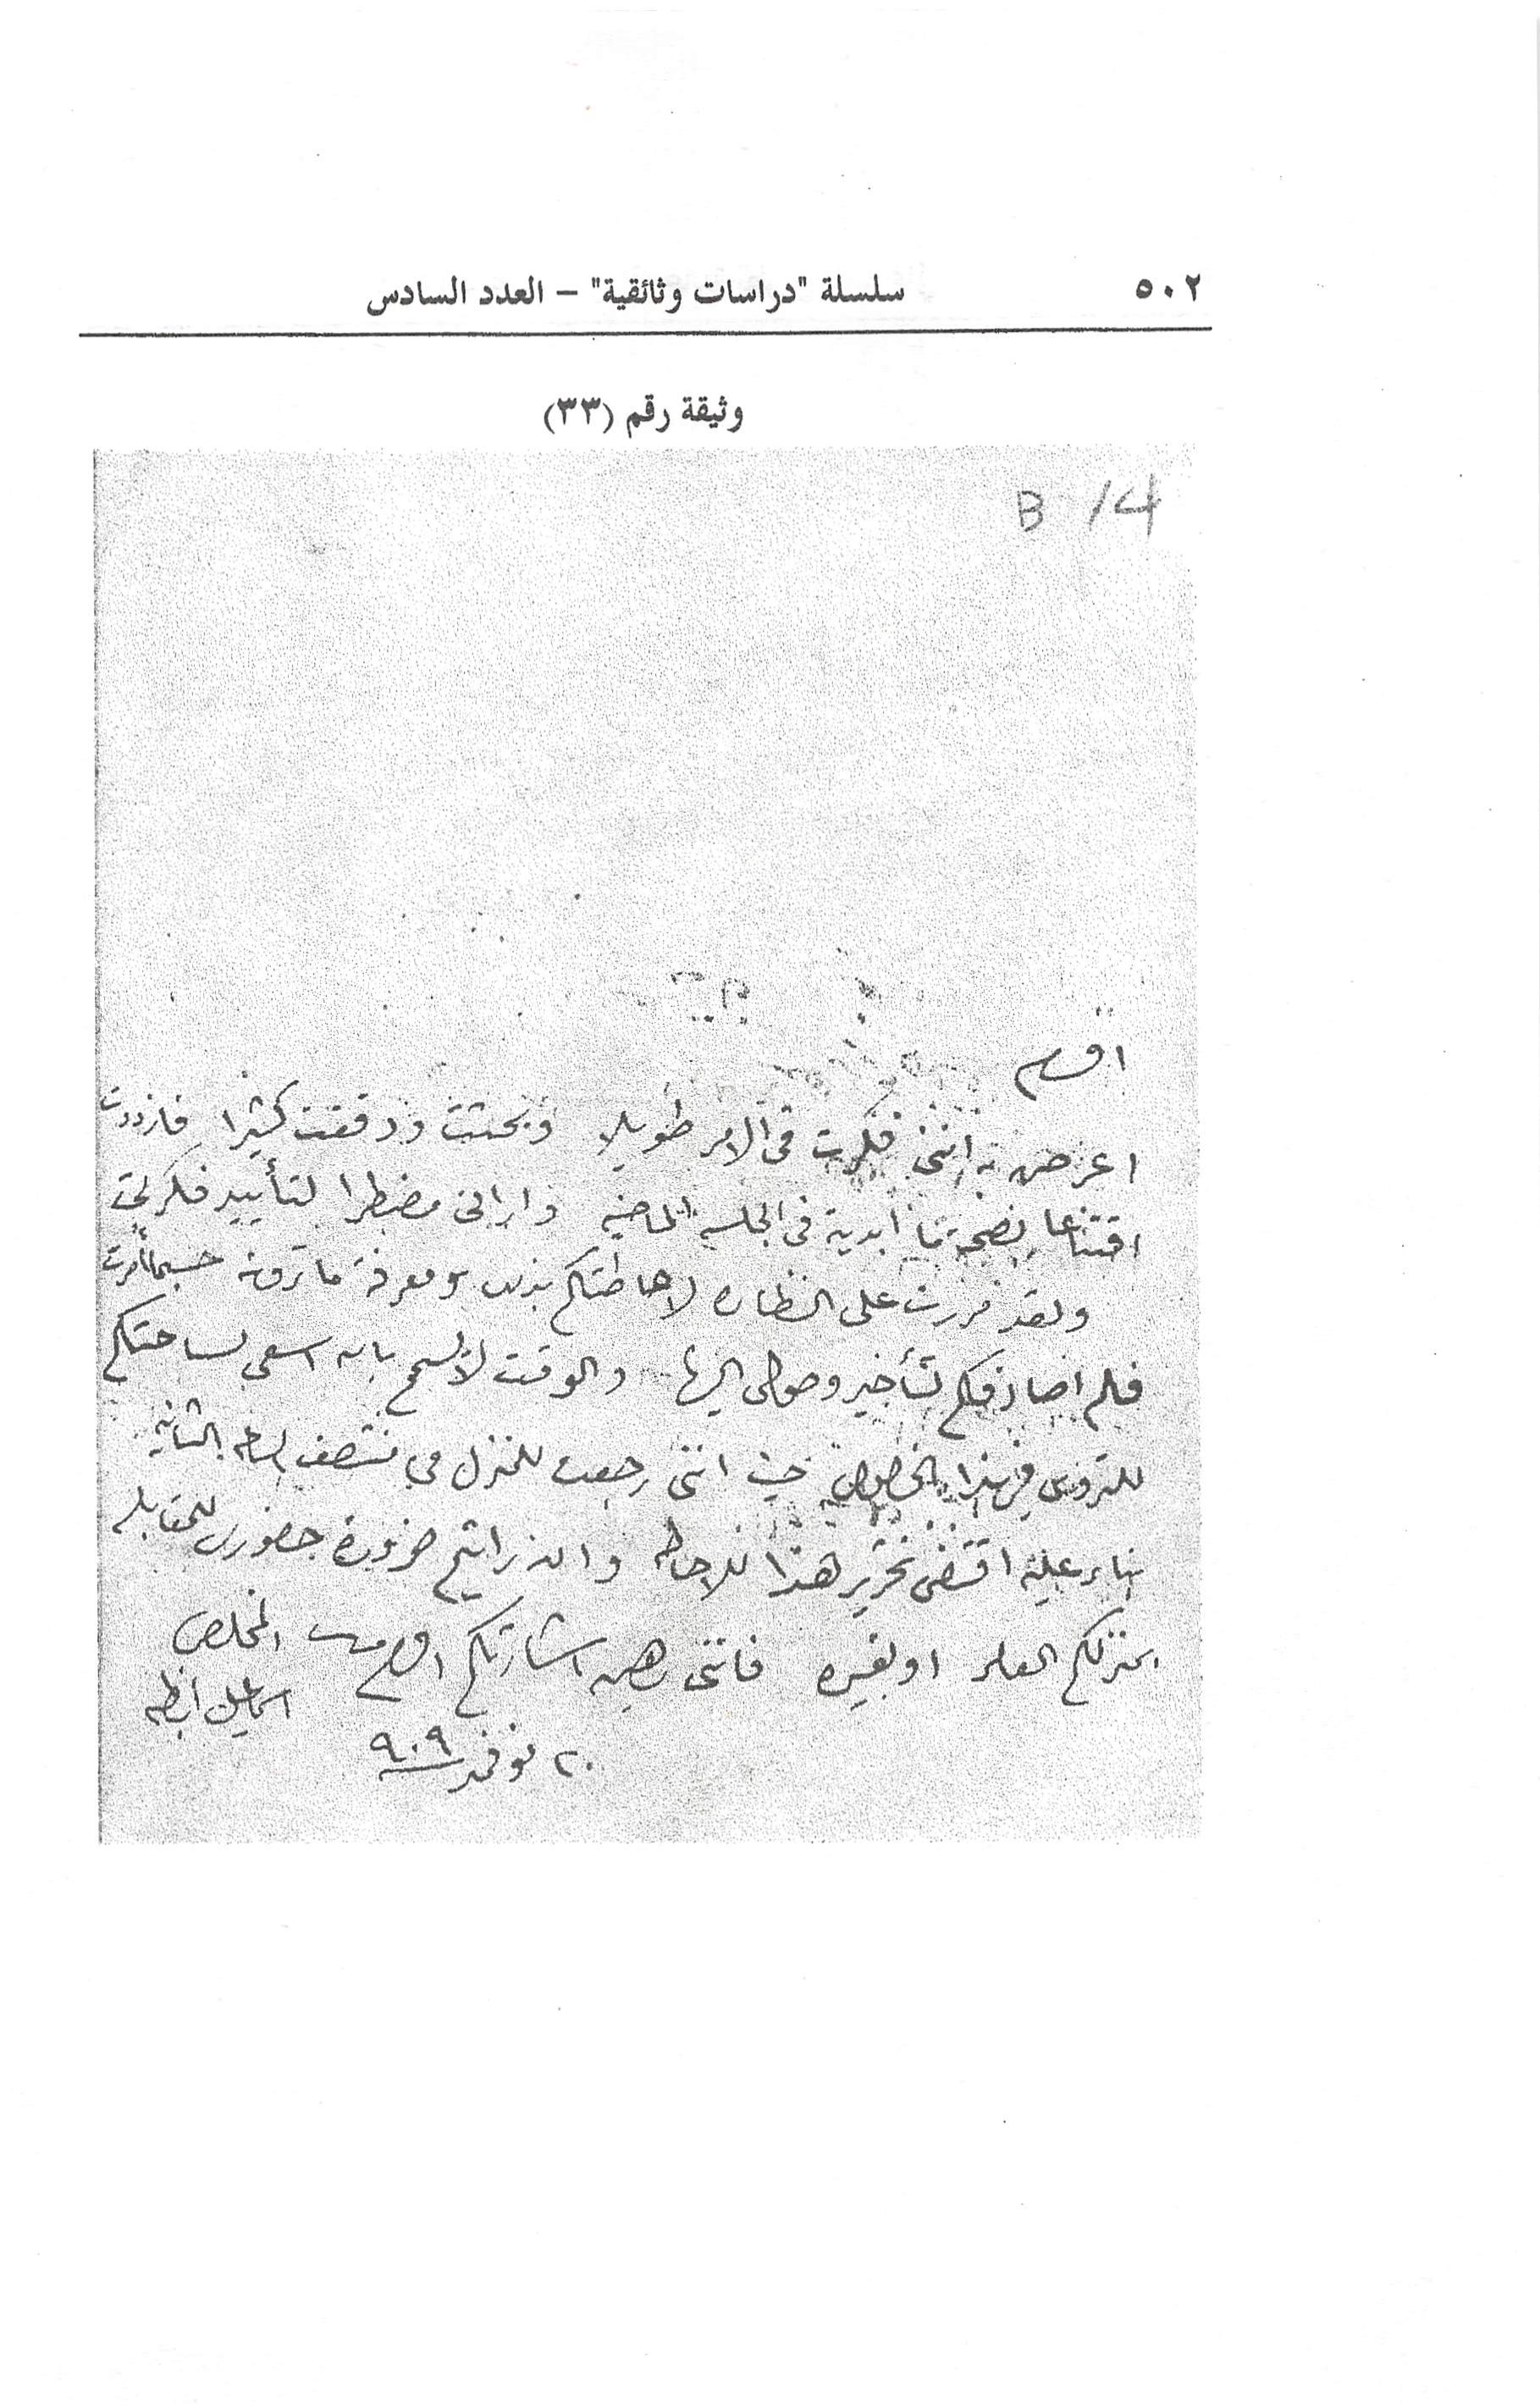 ٥٠٢
سلسلة "دراسات وثائقية" – العدد السادس
وثيقة رقم (٣٣)
B 14
افندم
اعرض بانني فكرت في الامر طويلا وبحثت ودققت كثيرا فازددت
اقتناعا بصحة ما ابديته في الجلسه الماضيه وارانى مضطرا لتأييد فكرتى
ولقد مررت على النظاره لاحاطتكم بذلك ومعرفة ما ترونه حسبما أمرت
فلم اصادفكم لتأخير وصولى اليها والوقت لا يسمح بان اسعى لساحتكم
للتروى في هذا الخصوص حيث انني رجعت للمنزل في منتصف الساعه الثانيه
بناء عليه اقتضى تحريره هذا للاحاطه وان رايتم ضرورة حضورى للمقابله
بمنزلكم العامر او بغيره فانني رهين اشارتكم افندم المخلص
اسماعيل اباظه
٢٠ نوفمبر ٩٠٩